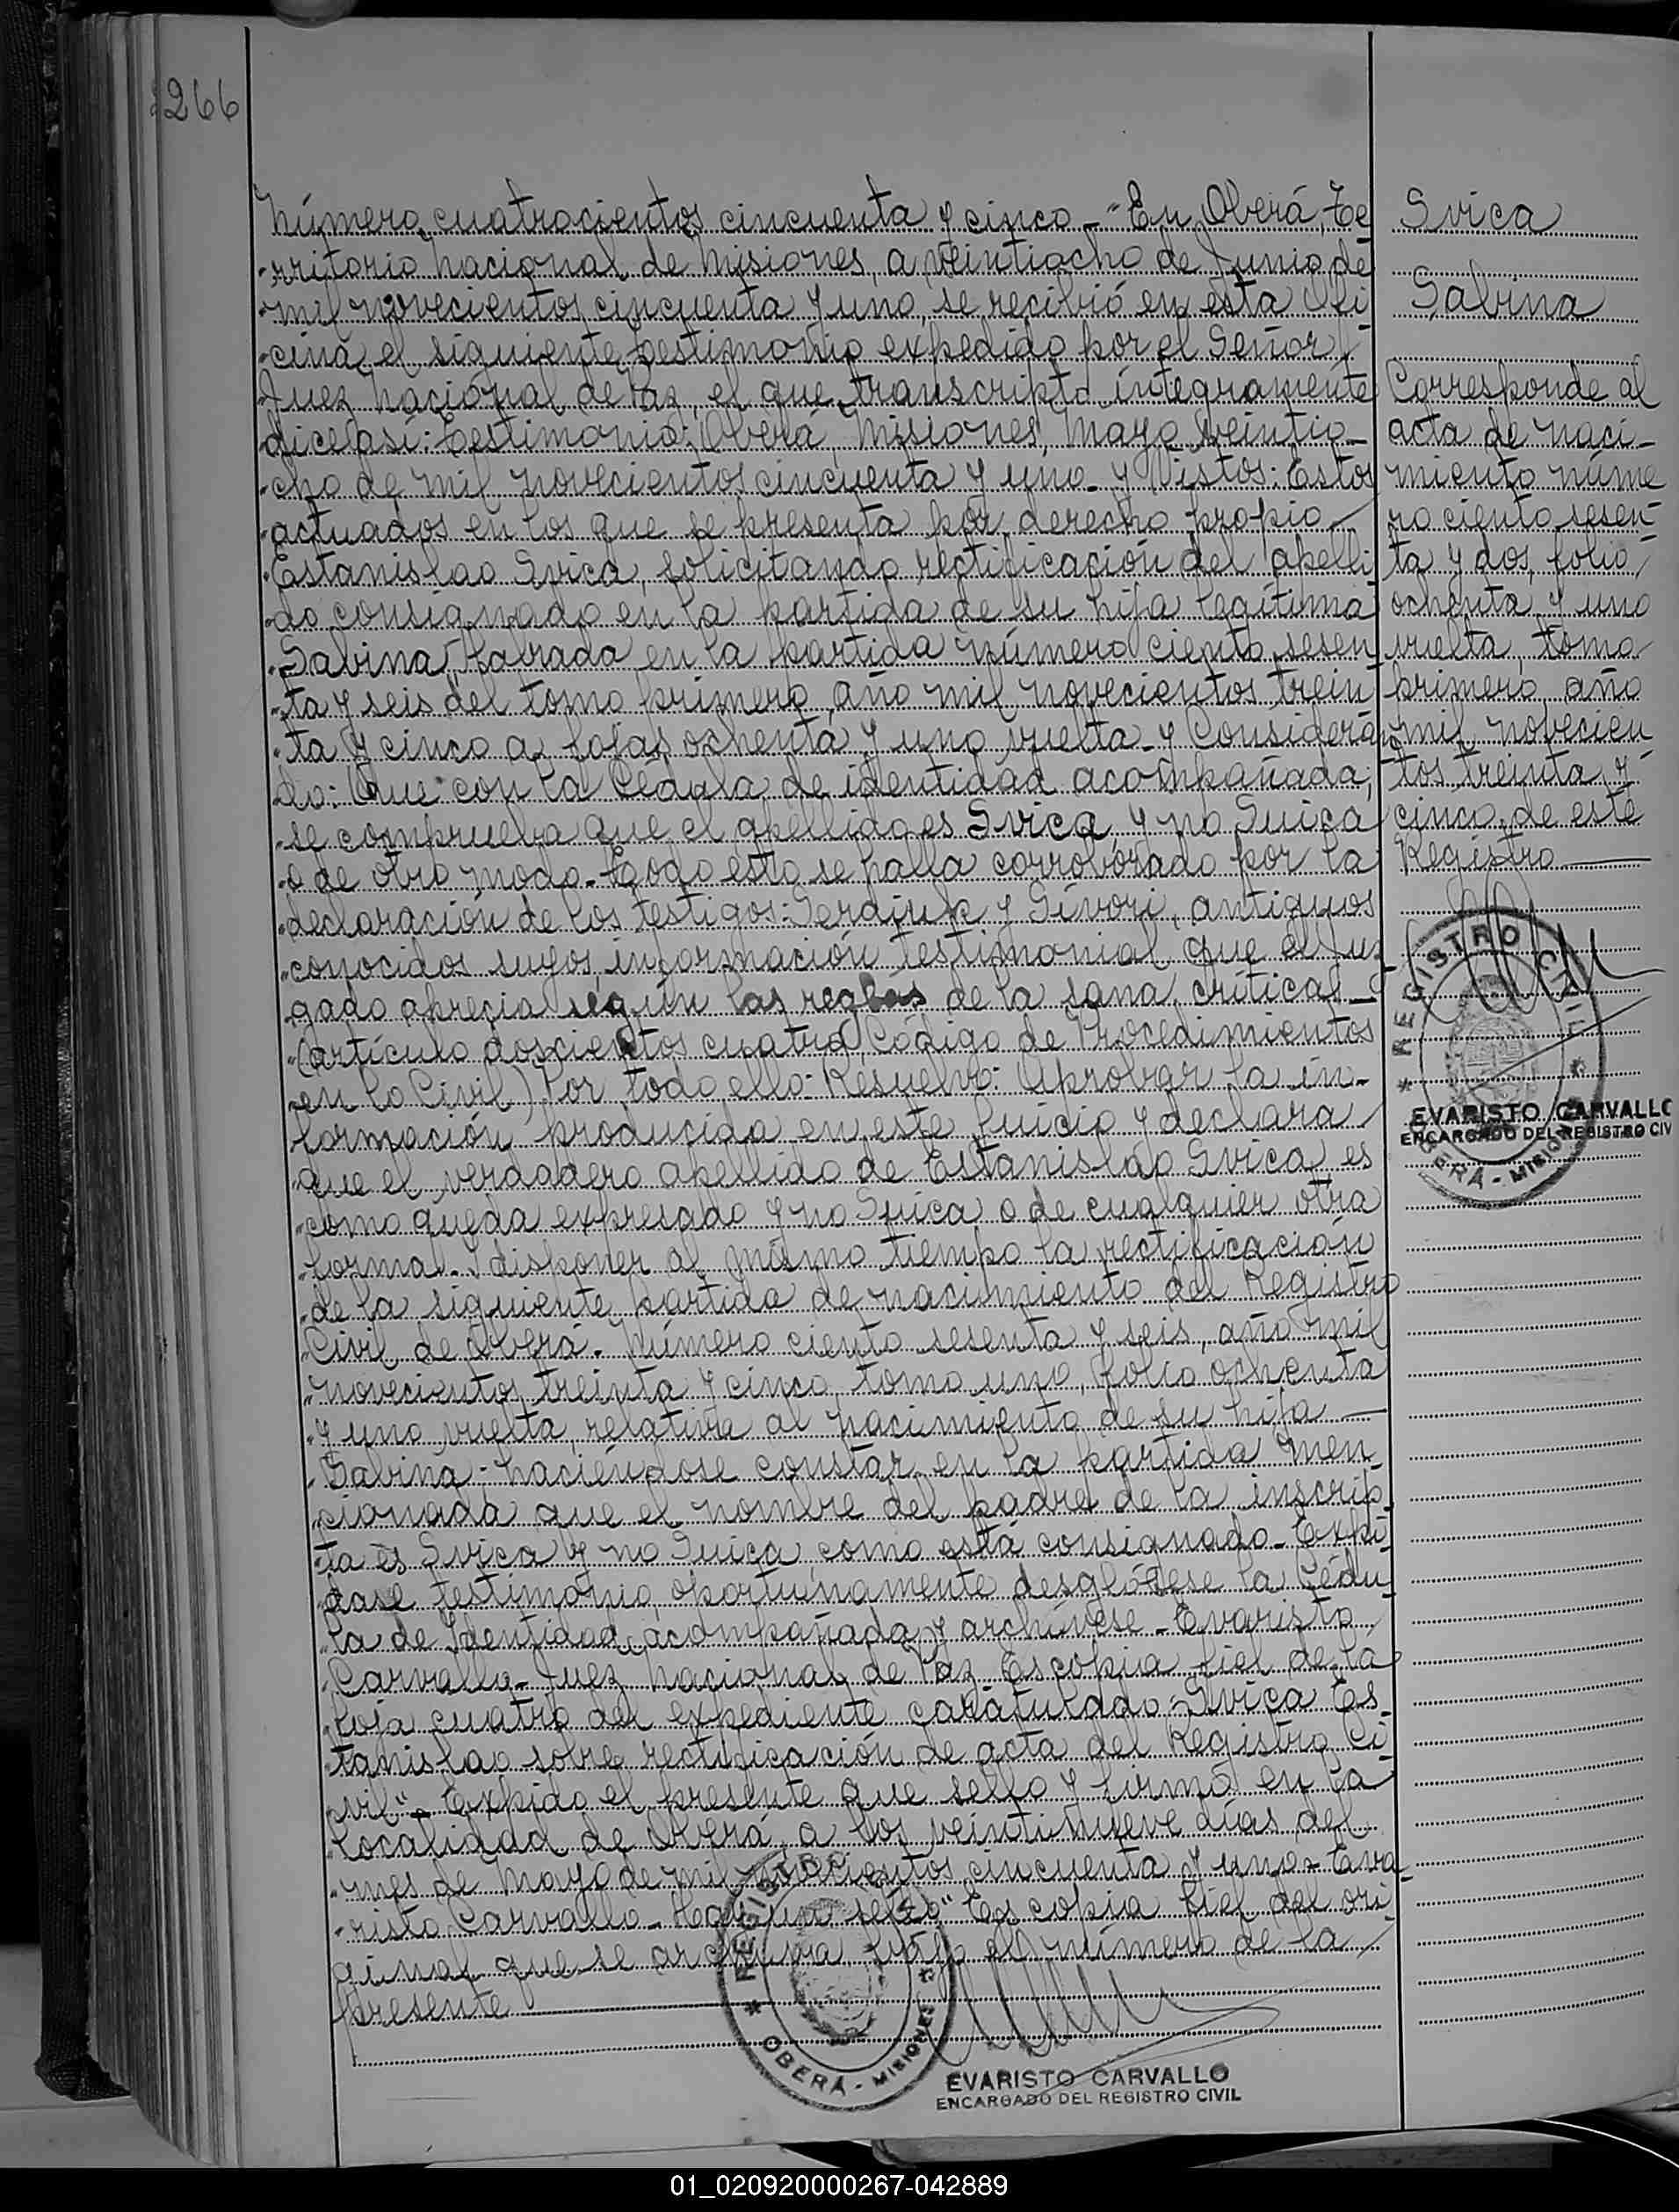 266
Número cuatrocientos cincuenta y cinco - "En Oberá, Te
"rritorio Nacional de Misiones, a veintiocho de Junio de
"mil novecientos cincuenta y uno, se recibió en esta Ofi
"cina el siguiente testimonio expedido por el Señor
"Juez Nacional de Paz, el que transcripto íntegramente
dice así: Testimonio: Oberá, Misiones, Mayo veintio-
"cho de mil novecientos cincuenta y uno - Y Vistos: Estos
"actuados en los que se presenta por derecho propio
"Estanislao Svica, solicitando rectificación del apelli
"do consignado en la partida de su hija legítima
"Sabina, labrada en la partida número ciento sesen
"ta y seis del tomo primero, año mil novecientos trein
"ta y cinco a fojas ochenta y uno vuelta - Y Consideran
do: Que con la Cédula de identidad acompañada,
"se comprueba que el apellido es Svica y no Suica
"o de otro modo - Todo esto se halla corroborado por la
"declaración de los testigos: Serdiuk y Sívori, antiguos
"conocidos suyos, información testimonial que el Juz
gado aprecia según las reglas de la sana crítica -
"(artículo doscientos cuatro Código de Procedimientos
"en lo Civil) Por todo ello: Resuelvo: Aprobar la in-
formación producida en este juicio y declara
"que el verdadero apellido de Estanislao Svica es
"como queda expresado y no Suica o de cualquier otra
"forma - Y disponer al mismo tiempo la rectificación
"de la siguiente partida de nacimiento del Registro
"Civil de Oberá. Número ciento sesenta y seis, año mil
"novecientos treinta y cinco, tomo uno, folio ochenta
"y uno vuelta, relativa al nacimiento de su hija
"Sabina - haciéndose constar en la partida men
"cionada que el nombre del padre de la inscrip
"ta es Svica y no Suica como está consignado - Expí
"dase testimonio, oportunamente desglósese la Cédu
"la de Identidad acompañada y archívese - Evaristo
"Carvallo - Juez Nacional de Paz - Es copia fiel de la
"foja cuatro del expediente caratulado: Svica Es
"tanislao sobre rectificación de acta del Registro Ci
"vil" - Expido el presente que sello y firmo en la
"localidad de Oberá a los veintinueve días del
"mes de Mayo de mil novecientos cincuenta y uno - Eva
"risto Carvallo - Hay un sello" Es copia fiel del ori
ginal que se archiva bajo el número de la
presente
REGISTRO CIVIL
* OBERÁ - MISIONES *
EVARISTO CARVALLO
ENCARGADO DEL REGISTRO CIVIL
Svica
Sabina
Corresponde al
acta de naci-
miento núme
ro ciento sesen-
ta y dos, folio
ochenta y uno
vuelta, tomo
primero, año
mil novecien
tos treinta y
cinco, de este
Registro
REGISTRO CIVIL
EVARISTO CARVALLO
ENCARGADO DEL REGISTRO CIV
* OBERÁ - MISIONES *
01_020920000267-042889